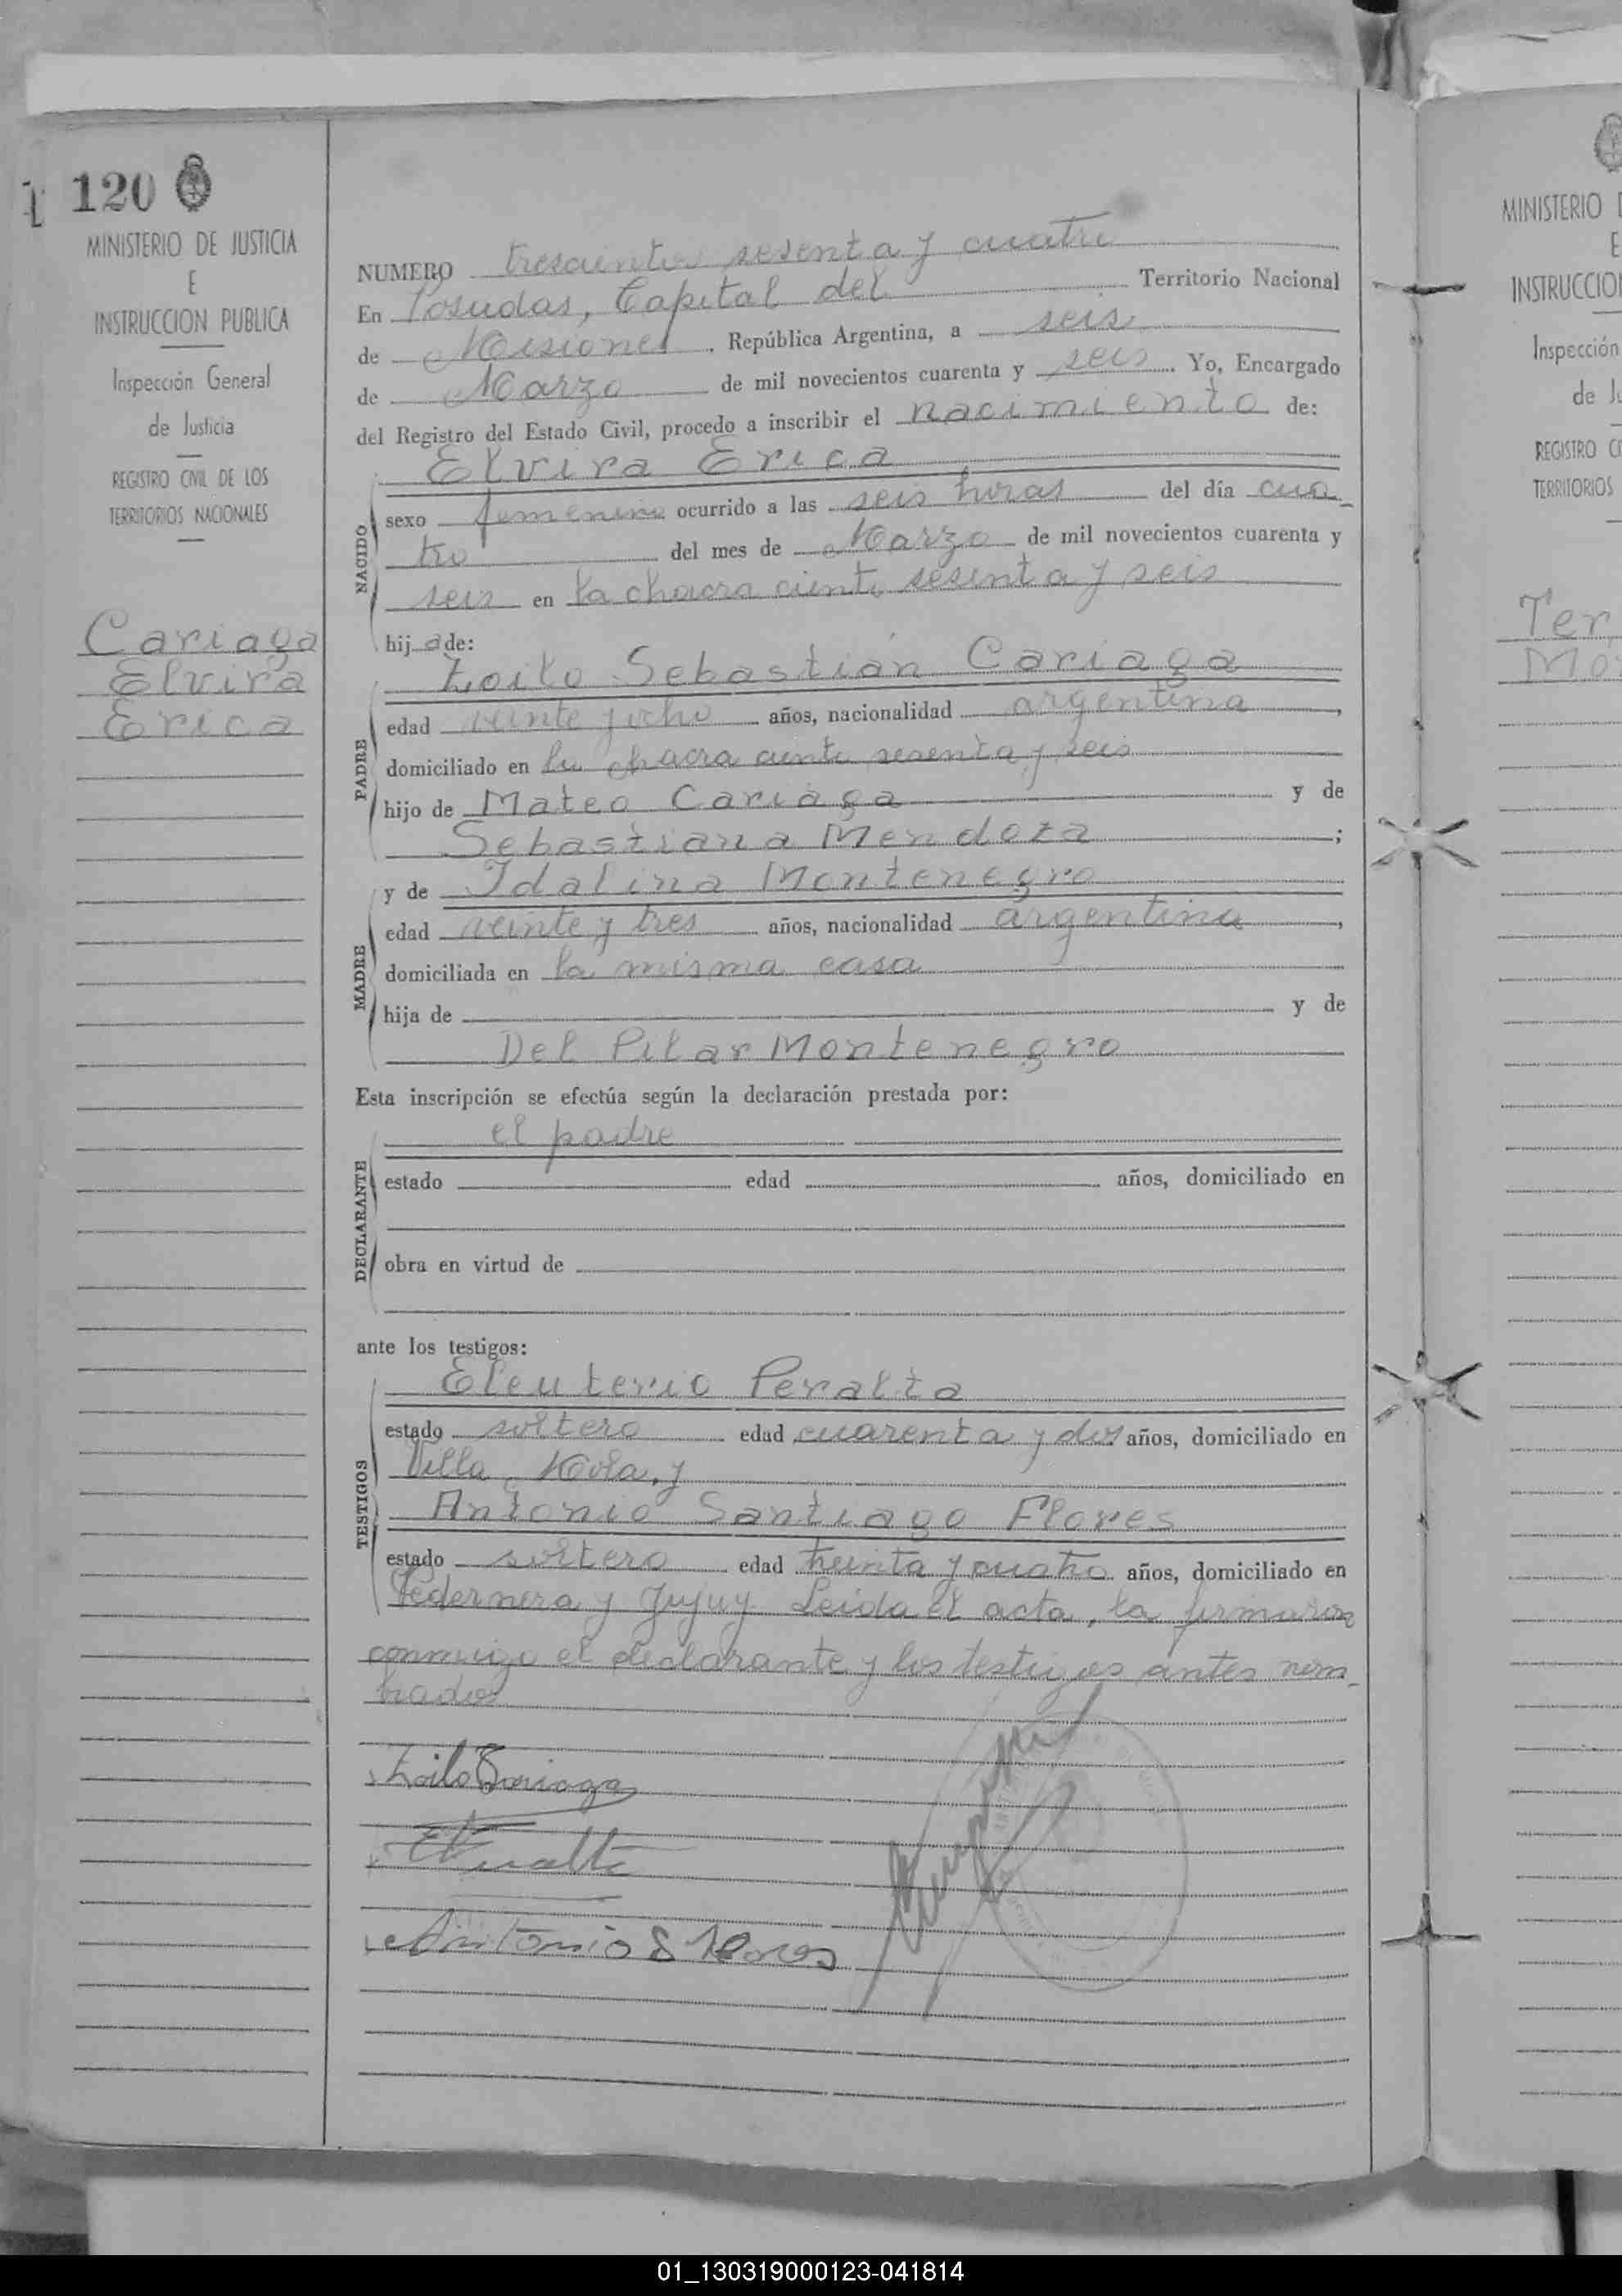 120
MINISTERIO DE JUSTICIA
E
INSTRUCCION PUBLICA
Inspección General
de Justicia
REGISTRO CIVIL DE LOS
TERRITORIOS NACIONALES
Cariaga
Elvira
Erica
NUMERO trescientos sesenta y cuatro
En Posadas, Capital del Territorio Nacional
de Misiones, República Argentina, a seis
de Marzo de mil novecientos cuarenta y seis. Yo, Encargado
del Registro del Estado Civil, procedo a inscribir el nacimiento de:
Elvira Erica
NACIDO
sexo femenino ocurrido a las seis horas del día cua-
tro del mes de Marzo de mil novecientos cuarenta y
seis en la chacra ciento sesenta y seis
hija de:
Zoilo Sebastián Cariaga
PADRE
edad veinte y ocho años, nacionalidad argentina,
domiciliado en la chacra ciento sesenta y seis
hijo de Mateo Cariaga y de
Sebastiana Mendoza;
y de Idalina Montenegro
MADRE
edad veinte y tres años, nacionalidad argentina,
domiciliada en la misma casa
hija de y de
Del Pilar Montenegro
Esta inscripción se efectúa según la declaración prestada por:
el padre
DECLARANTE
estado edad años, domiciliado en
obra en virtud de
ante los testigos:
Eleuterio Peralta
TESTIGOS
estado soltero edad cuarenta y dos años, domiciliado en
Villa, y
Antonio Santiago Flores
estado soltero edad treinta y cuatro años, domiciliado en
Pedernera y Jujuy. Leida el acta, la firmaron
conmigo el declarante y los testigos antes nom-
brados
Zoilo S Cariaga
E Peralta
Antonio S Flores
MINISTERIO
E
INSTRUCCION
Inspección
de Ju
REGISTRO CI
TERRITORIOS
Ter
Mo
01_130319000123-041814